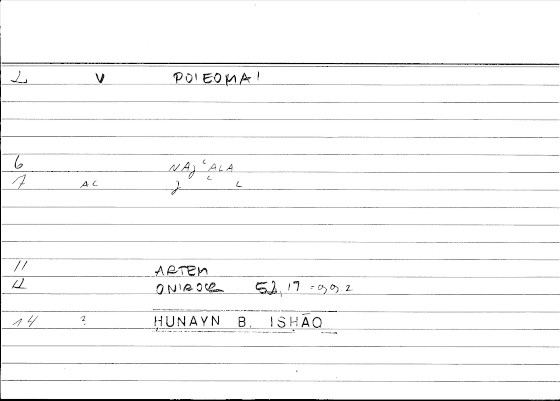 2 V POIEOMAI
6 NAJʿALA
7 AL J ʿ L
11 ARTEM
12 ONIROCR 52, 17 =992
14 ? HUNAYN B. ISḤĀQ